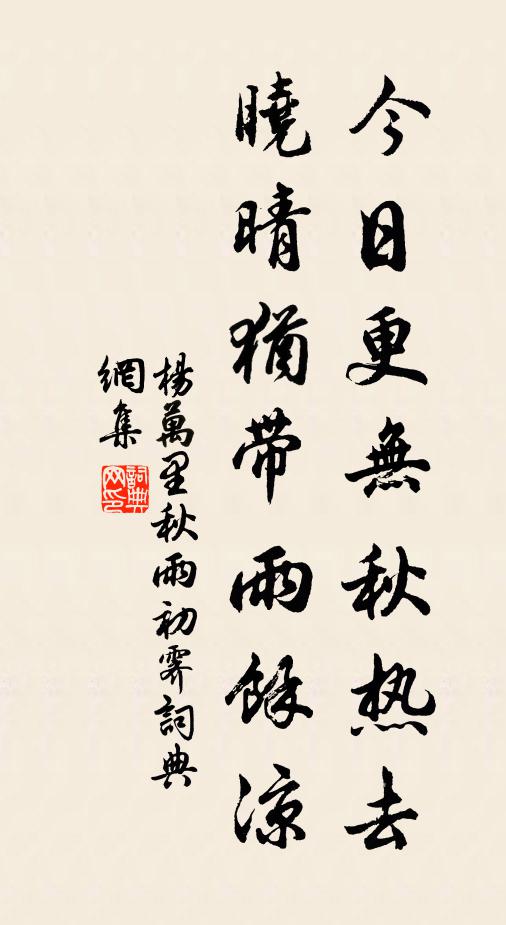 今日更無秋热去
曉晴猶帶雨餘涼
楊萬里秋雨初霽詞典
網集
詞典
网印